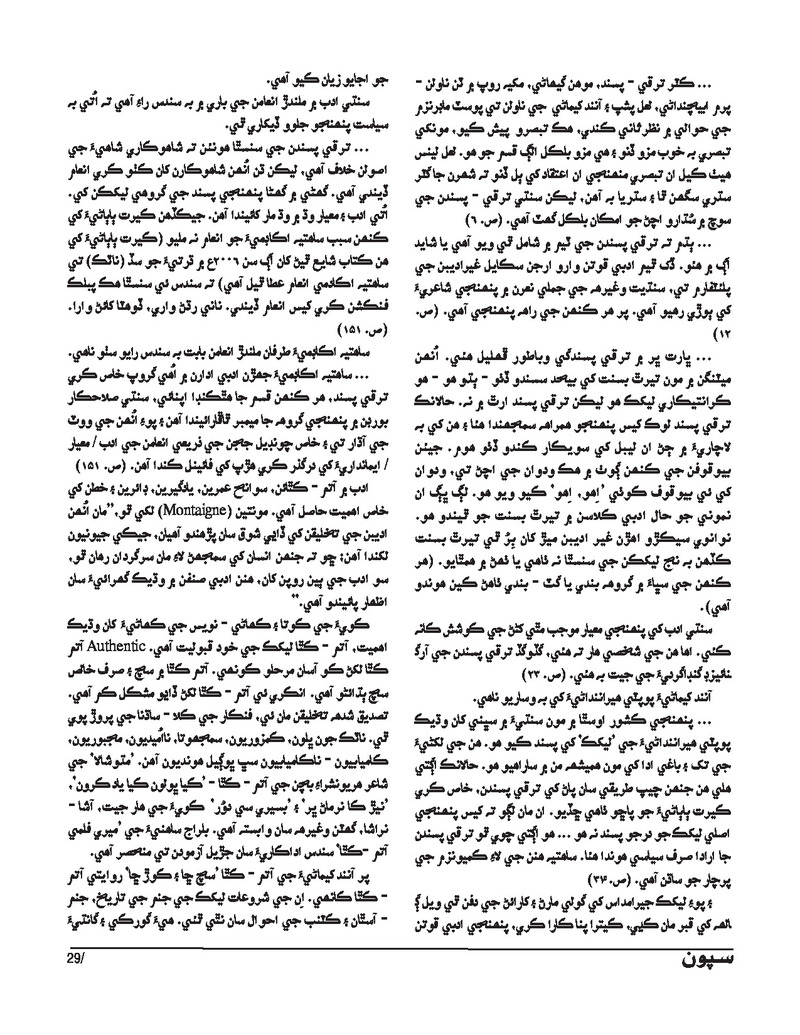 ... ڪٽر ترقي - پسند، موهن گيهاڻي، مکيه روپ ۾ ٽن ناولن -
پرم اڀيچنداڻي، لعل پشپ ۽ آنند کيماڻي جي ناولن تي پوسٽ ماڊرنزم
جي حوالي ۾ نظر ثاني ڪندي، هڪ تبصرو پيش ڪيو، مونکي
تبصري به خوب مزو ڏنو ۽ هي مزو بلڪل الڳ قسم جو هو. لعل لينس
هيٺ ڪيل ان تبصري منهنجي ان اعتقاد کي ٻل ڏنو ته شهرن جا گٽر
ستري سگهن ٿا ۽ ستريا به آهن، ليڪن سنتي ترقي - پسندن جي
سوچ ۾ سُڌارو اچڻ جو امڪان بلڪل گهٽ آهي. (ص. ٦)
... پڌم ته ترقي پسندن جي ٽيم ۾ شامل ٿي ويو آهي يا شايد
اڳ ۾ هئو. ڏک ٿيم ادبي قوتن وارو ارجن سڪايل غيراديبن جي
پلئٽفارم تي، سنڌيت وغيره جي جملي نعرن ۾ پنهنجي شاعريءَ
کي ٻوڙي رهيو آهي. پر هر ڪنهن جي راهه پنهنجي آهي. (ص.
١٢)
... ڀارت ڀر ۾ ترقي پسندگي وباطور ڦهليل هئي. اُنهن
ميٽنگن ۾ مون تيرٿ بسنت کي بيحد سسندو ڏٺو - ٻڌو هو - هو
ڪرانتيڪاري ليکڪ هو ليڪن ترقي پسند ارٿ ۾ نه. حالانڪ
ترقي پسند لوڪ کيس پنهنجو همراهه سمجهندا هئا ۽ هن کي به
لاچاريءَ ۾ ڄڻ ان ليبل کي سويڪار ڪندو ڏٺو هوم. جيئن
بيوقوفن جي ڪنهن ڳوٺ ۾ هڪ ودوان جي اچڻ تي، ودوان
کي ئي بيوقوف ڪوٺي ’اِهو، اِهو‘ ڪيو ويو هو. لڳ ڀڳ ان
نموني جو حال ادبي ڪلاسن ۾ تيرٿ بسنت جو ٿيندو هو.
نوانوي سيڪڙو اهڙن غير اديبن ميڙ کان ٻرُ ٿي تيرٿ بسنت
ڪڏهن به نج ليکڪن جي سنسٿا نه ٺاهي يا ٺهڻ ۾ همٿايو. (هر
ڪنهن جي سڀاءَ ۾ گروهه بندي يا گٽ - بندي ٺاهڻ ڪين هوندو
آهي).
سنتي ادب کي پنهنجي معيار موجب مٿي کڻڻ جي ڪوشش ڪانه
ڪئي. اها هن جي شخصي هار ته هئي، گڏوگڏ ترقي پسندن جي آرگ
نائيزڊ گنڊاگرديءَ جي جيت به هئي. (ص. ٢٣)
آنند کيماڻيءَ پوپٽي هيراننداڻيءَ کي به وساريو ناهي.
... پنهنجي ڪشور اوسٿا ۾ مون سنتيءَ ۾ سڀني کان وڌيڪ
پوپٽي هيراننداڻيءَ جي ’ليکڪ‘ کي پسند ڪيو هو. هن جي لکڻيءَ
جي تک ۽ باغي ادا کي مون هميشہ من ۾ ساراهيو هو. حالانڪ اڳتي
هلي هن جنهن چيپ طريقي سان پاڻ کي ترقي پسندن، خاص ڪري
ڪيرت ٻاٻاڻيءَ جو پاڇو ٺاهي ڇڏيو. ان مان لڳو ته کيس پنهنجي
اصلي ليکڪ جو درجو پسند نه هو ... هو اڳتي چوي ٿو ترقي پسندن
جا ارادا صرف سياسي هوندا هئا. ساهتيه هنن جي لاءِ ڪميونزم جي
پرچار جو ساڌن آهي. (ص. ٣۴)
۽ پوءِ ليکڪ جيرامداس کي گولي مارڻ ۽ کارائڻ جي دفن ٿي ويل ڳ
الهہ کي قبر مان ڪڍي، ڪيترا پنا ڪارا ڪري، پنهنجي ادبي قوتن
جو اجايو زيان ڪيو آهي.
سنتي ادب ۾ ملندڙ انعامن جي باري ۾ به سندس راءِ آهي ته اُتي به
سياست پنهنجو جلوو ڏيکاري ٿي.
... ترقي پسندن جي سنسٿا هوئنئن ته شاهوڪاري شاهيءَ جي
اصولن خلاف آهي، ليڪن ٿن اُنهن شاهوڪارن کان کڻو ڪري انعام
ڏيندي آهي. گهڻي ۾ گهڻا پنهنجي پسند جي گروهي ليکڪن کي.
اُتي ادب ۽ معيار وڏ ۾ وڏ مار کائيندا آهن. جيڪڏهن ڪيرت ٻاٻاڻيءَ کي
ڪنهن سبب ساهتيه اڪاڊميءَ جو انعام نہ مليو (ڪيرت ٻاٻاڻيءَ کي
هن ڪتاب شايع ٿيڻ کان اڳ سن ٢٠٠٦ع ۾ ڌرتيءَ جو سڏ (ناٽڪ) تي
ساهتيه اڪادمي انعام عطا ٿيل آهي) ته سندس ئي سنسٿا هڪ پبلڪ
فنڪشن ڪري کيس انعام ڏيندي. ناني رڌڻ واري، ڏوهٽا کائڻ وارا.
(ص. ١٥١)
ساهتيه اڪاڊميءَ طرفان ملندڙ انعامن بابت به سندس رايو سٺو ناهي.
... ساهتيه اڪاڊميءَ جهڙن ادبي ادارن ۾ اُهي گروپ خاص ڪري
ترقي پسند، هر ڪنهن قسم جا هٿڪنڊا اپنائي، سنتي صلاحڪار
بورڊن ۾ پنهنجي گروهه جا ميمبر ٿاڦرائيندا آهن ۽ پوءِ اُنهن جي ووٽ
جي آڌار تي ۽ خاص چونڊيل ججن جي ذريعي انعامن جي ادب / معيار
/ ايمانداريءَ کي درگذر ڪري هڙپ کي فائينل ڪندا آهن. (ص. ١٥١)
ادب ۾ آتم - ڪٿائن، سوانح عمرين، يادگيرين، ڊائرين ۽ خطن کي
خاص اهميت حاصل آهي. مونتين (Montaigne) لکي ٿو، ”مان اُنهن
اديبن جي تخليقن کي ڏاڍي شوق سان پڙهندو آهيان، جيڪي جيونيون
لکندا آهن؛ ڇو ته جنهن انسان کي سمجهڻ لاءِ مان سرگردان رهان ٿو،
سو ادب جي ٻين روپن کان، هنن ادبي صنفن ۾ وڌيڪ گهرائيءَ سان
اظهار پائيندو آهي.“
ڪويءَ جي ڪوتا ۽ ڪهاڻي - نويس جي ڪهاڻيءَ کان وڌيڪ
اهميت، آتم - ڪٿا ليکڪ جي خود قبوليت آهي. Authentic آتم
ڪٿا لکڻ ڪو آسان مرحلو ڪونهي. آتم ڪٿا ۾ سچ ۽ صرف خالص
سچ ٻڌائڻو آهي. انڪري ئي آتم - ڪٿا لکڻ ڏاڍو مشڪل ڪم آهي.
تصديق شده تخليقن مان ئي، فنڪار جي ڪلا - ساڌنا جي پروڙ پوي
ٿي. ناٽڪ جون ڀلون، ڪمزوريون، سمجهوتا، نااُميديون، مجبوريون،
ڪاميابيون - ناڪاميابيون سڀ ڀوڳيل هونديون آهن. ’مڌوشالا‘ جي
شاعر هريونشراءِ بچن جي آتم - ڪٿا - ’ڪيا ڀولون ڪيا ياد ڪرون‘،
’نيڙ ڪا نرماڻ ڀر‘ ۽ ’بسيري سي دوُر‘ ڪويءَ جي هار جيت، آشا -
نراشا، گهٽن وغيره سان وابسته آهي. بلراج ساهنيءَ جي ’ميري فلمي
آتم -ڪٿا‘ سندس اداڪاريءَ سان جڙيل آزمودن تي منحصر آهي.
پر آنند کيماڻيءَ جي آتم - ڪٿا ’سچ ڇا ۽ ڪوڙ ڇا‘ روايتي آتم
- ڪٿا ڪانهي. اِن جي شروعات ليکڪ جي جنم جي تاريخ، جنم
- آسٿان ۽ ڪٽنب جي احوال سان نٿي ٿئي. هيءَ گورکي ۽ گانڌيءَ
29/
سپون